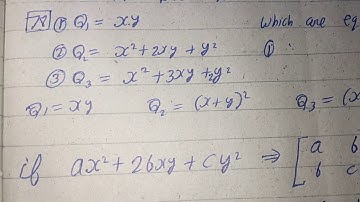 ① Q₁ = xy which are eq
② Q₂ = x² + 2xy + y² ①
③ Q₃ = x² + 3xy + 2y²
Q₁ = xy Q₂ = (x+y)² Q₃ = (x
if ax² + 2bxy + cy² ⇒ [a b
b c